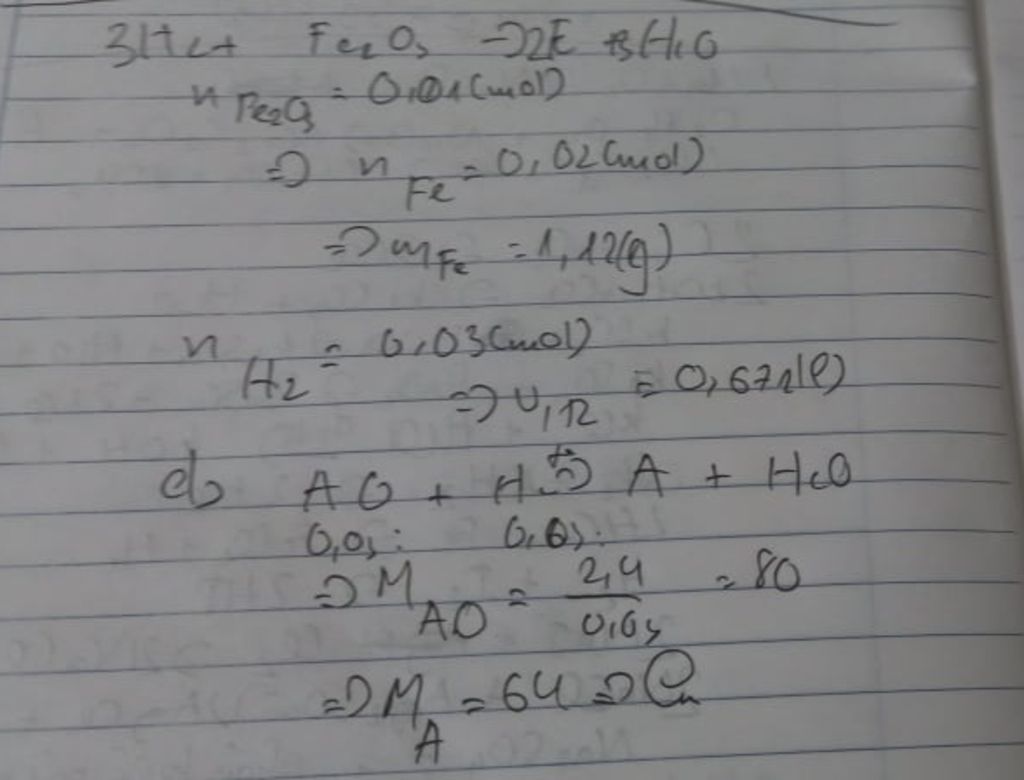 3H₂+ Fe₂O₃ → 2F +3H₂O
n Fe₂O₃ = 0,01(mol)
=> n Fe = 0,02(mol)
=> m Fe = 1,12(g)
n H₂ = 0,03(mol)
=> V H₂ = 0,672(l)
d, AO + H₂ → A + H₂O
0,03: 0,03:
=> M AO = 2,4 / 0,03 = 80
=> M A = 64 => Cu